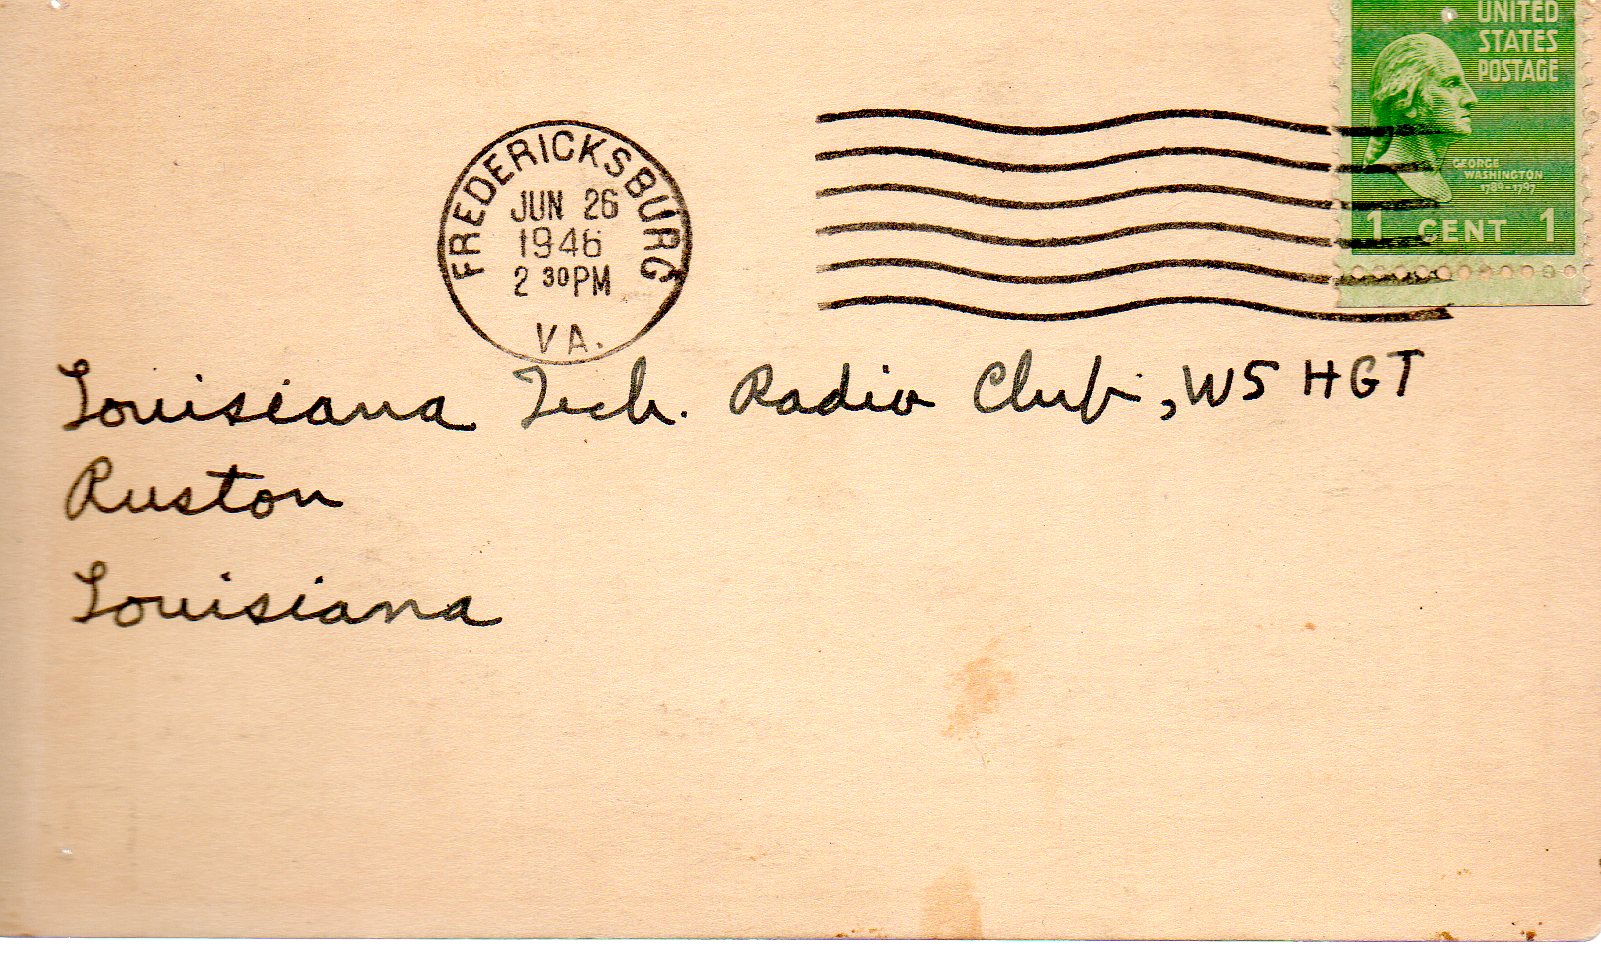 UNITED
STATES
POSTAGE
GEORGE
WASHINGTON
1789-1797
1 CENT 1
FREDERICKSBURG
JUN 26
1946
2 30PM
VA.
Louisiana Tech. Radio Club, W5HGT
Ruston
Louisiana